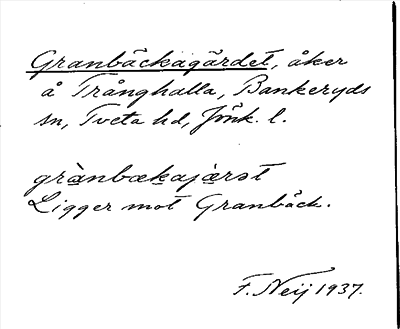 Granbäckagärdet, åker
å Trånghalla, Bankeryds
sn, Tveta hd, Jönk. l.
grànbækajæ̀rət
Ligger mot Granbäck.
F. Neij 1937.